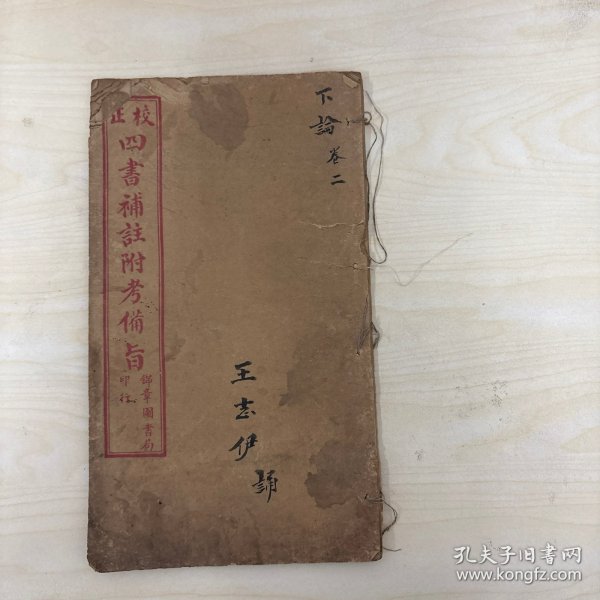 下論卷二
校正
四書補註附考備旨
錦章圖書局
印行
王志伊誦
孔夫子旧书网
www.kongfz.com